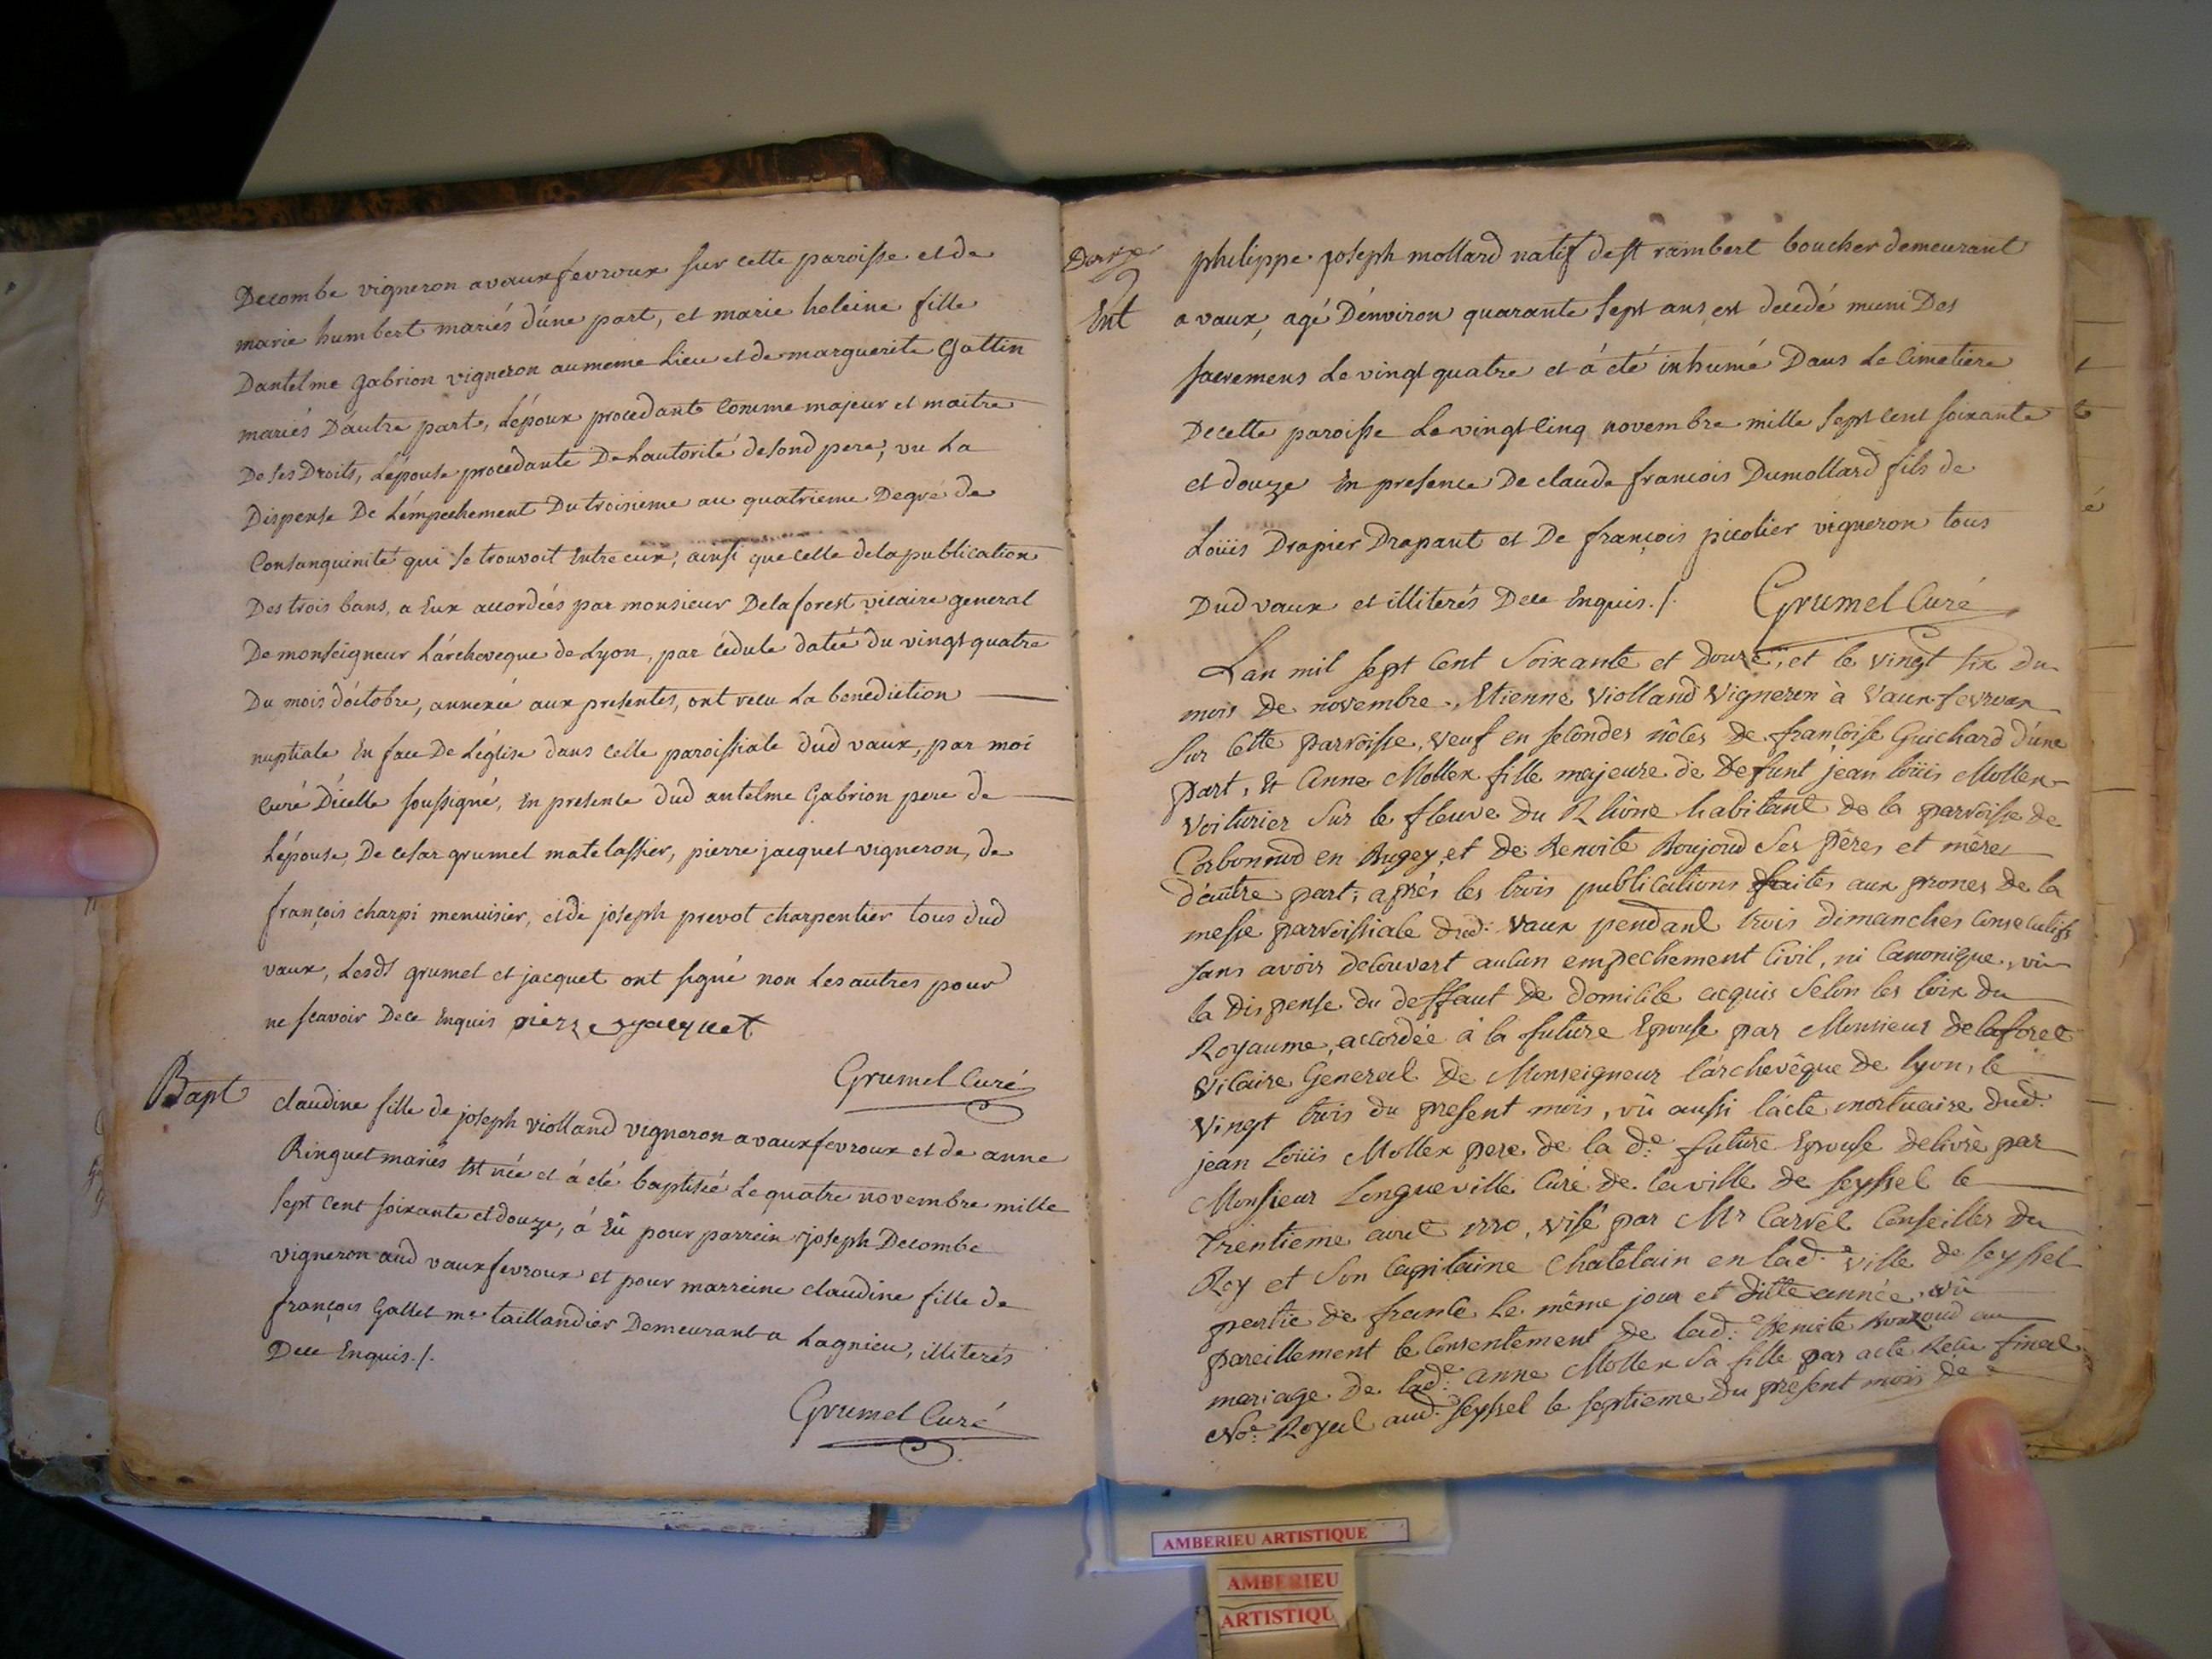 Decombe vigneron a vauxfevroux sur cette paroisse et de
marie humbert mariés d'úne part, et marie heleine fille
Dantelme gabrion vigneron au meme Lieu et de marguerite Gottin
mariés Dáutre part, Lépoux procedant Comme majeur et maitre
De ses Droits, Lépouse procedante De Lautorité desond pere; vu La
Dispense De Lémpechement Du troisieme au quatrieme Degré de
Consanguinité qui se trouvoit Entre eux; ainsi que celle de la publication
Des trois bans, a Eux accordées par monsieur Delaforest vicaire general
De monseigneur Lárcheveque de Lyon, par cédule datée du vingt quatre
Du mois dóctobre, annexée aux presentes, ont recu La benediction
nuptiale En face De Léglise dans Celle paroissiale dud vaux, par moi
Curé Dícelle soussigné, En presence dud antelme Gabrion pere de
Lépouse, De cesar grumel matelassier, pierre jacquet vigneron, de
françois charpi menuisier, et de joseph prevot charpentier tous dud
vaux, Lesds grumel et jacquet ont signé non Les autres pour
ne scavoir Dece Enquis pierre jacquet
Grumel Curé
Bapt
claudine fille de joseph violland vigneron a vauxfevroux et de anne
Ringuet mariés Est née et á eté baptisée Le quatre novembre mille
sept cent soixante et douze, á Eû pour parrein joseph Decombe
vigneron aud vauxfevroux et pour marreine claudine fille de
françois Gallet me taillandier Demeurant a Lagnieu, illiterés
Dece Enquis./.
Grumel Curé
Ent
philippe joseph mollard natif de st rambert boucher demeurant
a vaux, agé Dénviron quarante sept ans est decedé muni Des
sacremens Le vingt quatre et á eté inhumé Dans Le Cimetiere
De cette paroisse Le vingt Cinq novembre mille sept cent soixante
et douze En presence De claude francois Dumollard fils de
Loüis Drapier Drapant et De françois picotier vigneron tous
Dud vaux et illiterés Dece Enquis./.
Grumel Curé
Lan mil sept Cent Soixante et Douze, et le vingt six du
mois De novembre, Etienne Violland Vigneron à Vaux fevroux
sur Cette parroisse, veuf en secondes nôces de francoise Guichard d'úne
part, Et Anne Mollex fille majeure de Defunt jean loüis Mollex
Voiturier Sur le fleuve du Rhône habitant de la parroisse de
Corbonnod en Bugey, et de Benoite Boujoud Ses pères et mères
d'áutre part; après les trois publications faites aux prones de la
messe parroissiale dud: Vaux pendant trois dimanches Consecutifs
sans avoir decouvert aucun empechement Civil, ni Canonique, vû
la dispense du deffaut de domicile acquis Selon les loix du
Royaume, accordée à la future Epouse par Monsieur delaforet
Vicaire General de Monseigneur l'árchevêque de lyon, le
Vingt trois du present mois, vû aussi l'ácte mortuaire dud:
jean Loüis Mollex pere de la de: future Epouse delivré par
Monsieur Longueville Curé de la ville de seyssel le
trentieme avril 1770, visé par Mr Carrel Conseiller du
Roy et Son Capitaine Chatelain en lad: ville de seyssel
partie de france Le même jour et ditte année, vû
pareillement le Consentement de lad: Benoite Boujoud au
mariage de lade: anne Mollex Sa fille par acte Reçu
Noe: Royal aud: Seyssel le septieme Du présent mois de
AMBERIEU ARTISTIQUE
AMBERIEU
ARTISTIQU